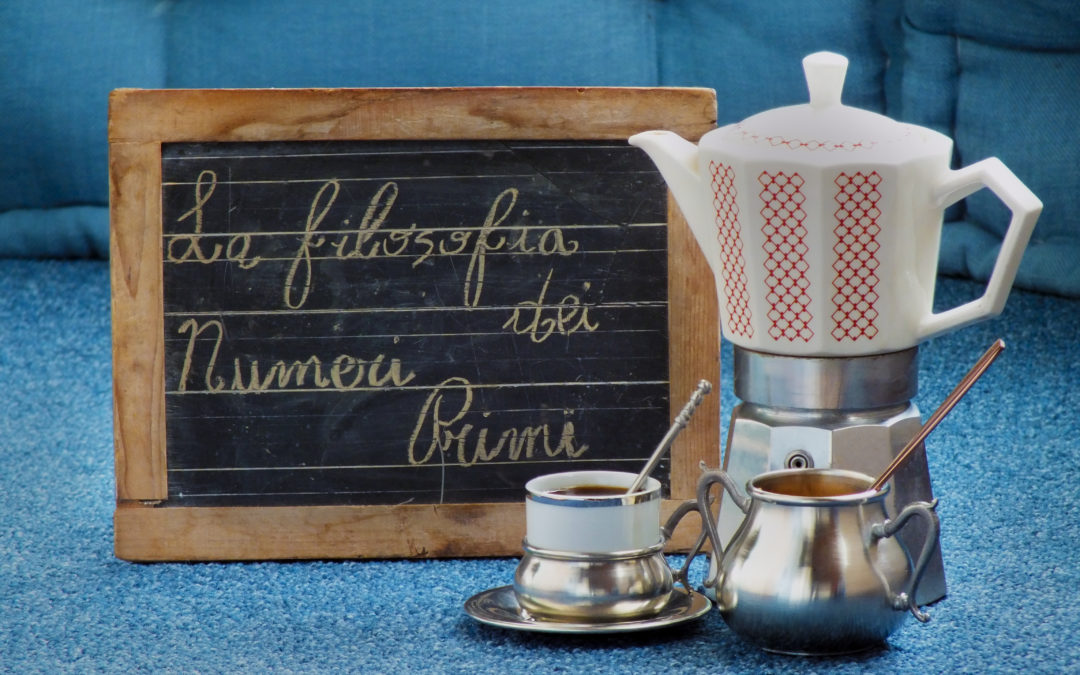 La filosofia
dei
Numeri
Primi